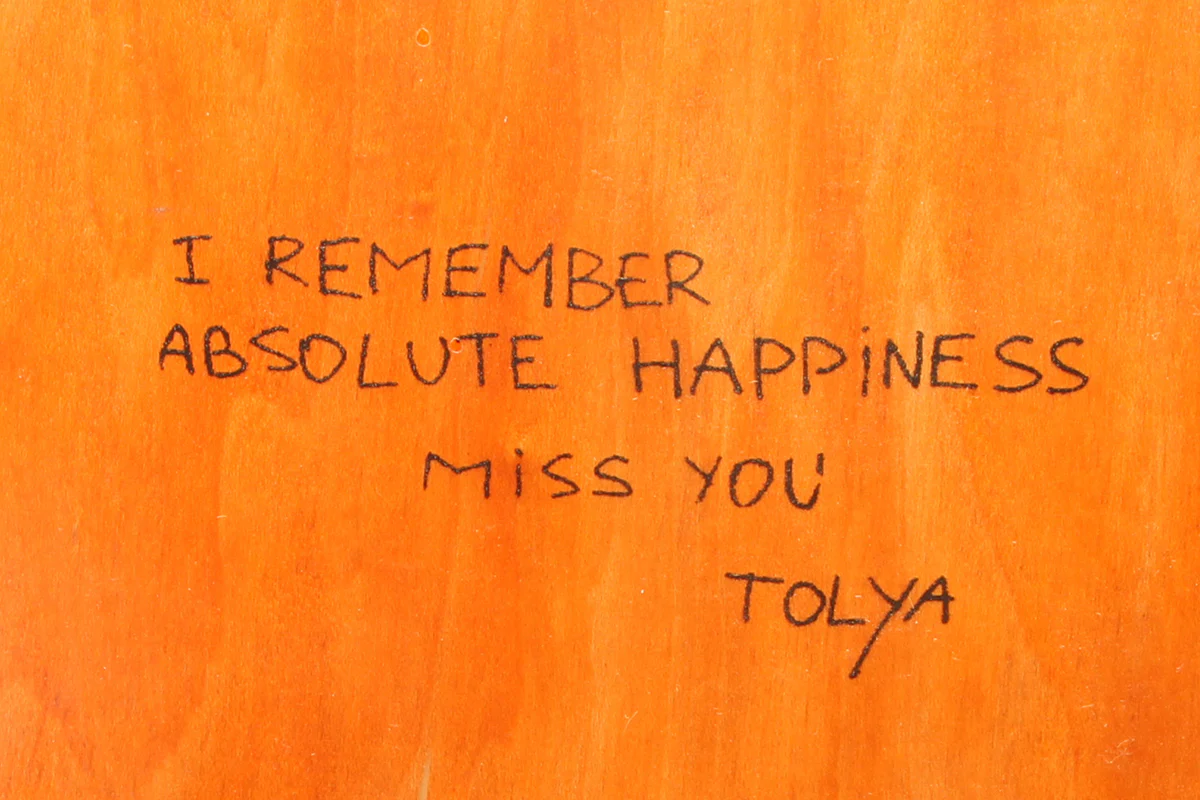 I REMEMBER
ABSOLUTE HAPPiNESS
MiSS YOU
TOLYA